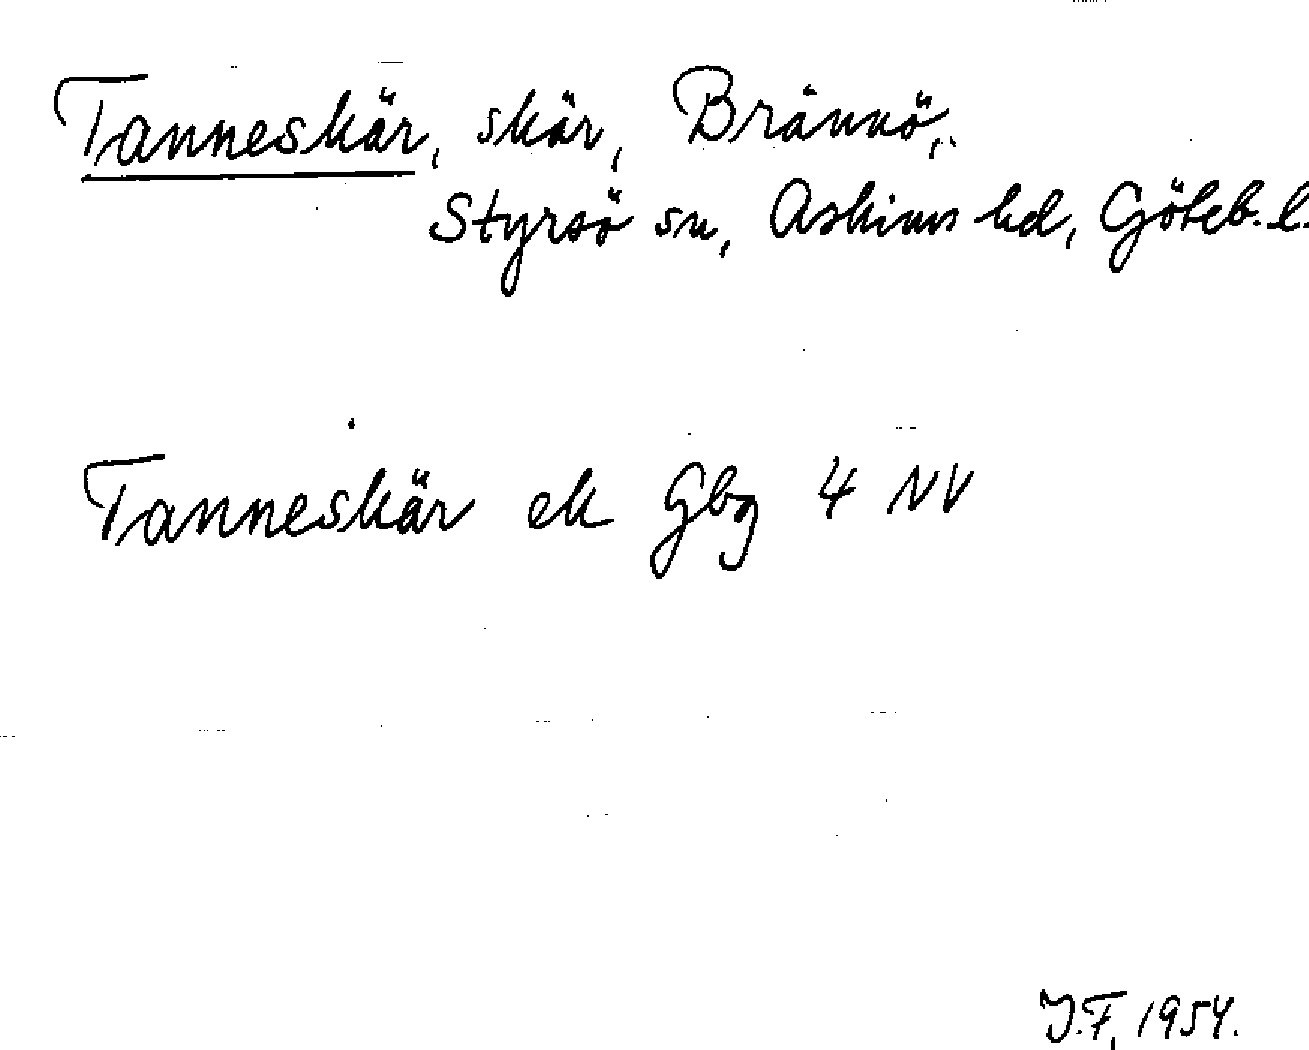 Tanneskär, skär, Brännö,
Styrsö sn, Askims hd, Göteb. l.
Tanneskär ek Gbg 4 NV
J.F. 1954.